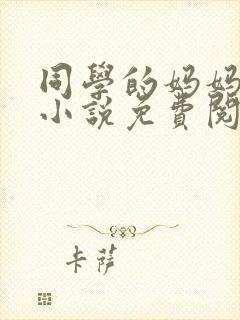 同學的媽媽
小說免費閱
卡薩